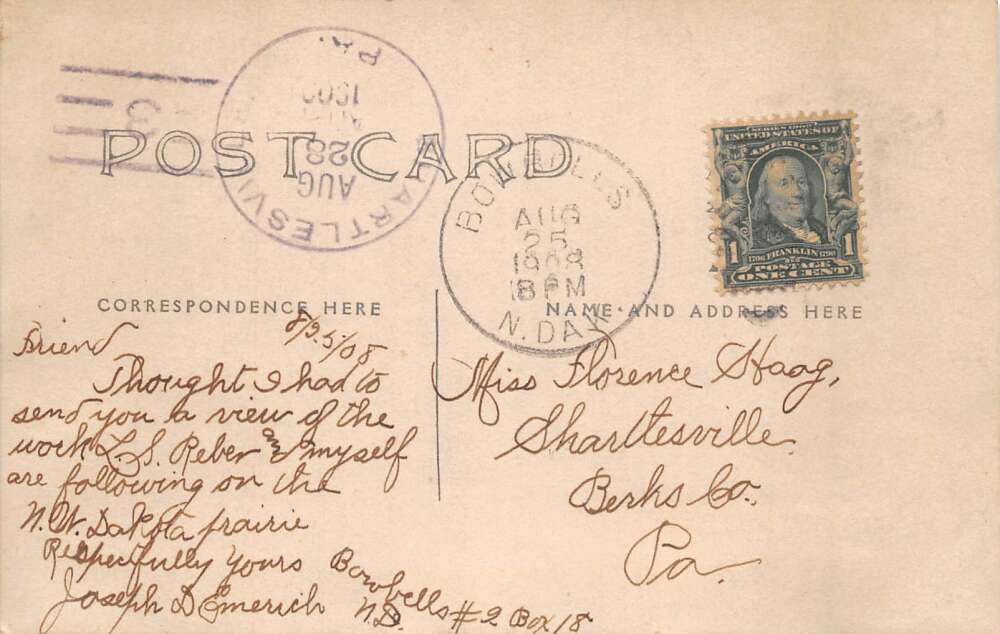 POST CARD
SHARTLESVILLE
PA.
AUG
28
BOWBELLS
AUG
25
1908
8 PM
N. DAK
SERIES 1902
UNITED STATES OF
AMERICA
1706 FRANKLIN 1790
POSTAGE
1 ONE CENT 1
CORRESPONDENCE HERE
NAME AND ADDRESS HERE
8/25/08
Friend
Thought I had to
send you a view of the
work L. S. Reber and myself
are following on the
N. W. Dakota prairie
Respecfully Yours
Joseph D Emerich
Bowbells
N.D. #2 Box 18
Miss Florence Haag,
Sharttesville
Berks Co.
Pa.